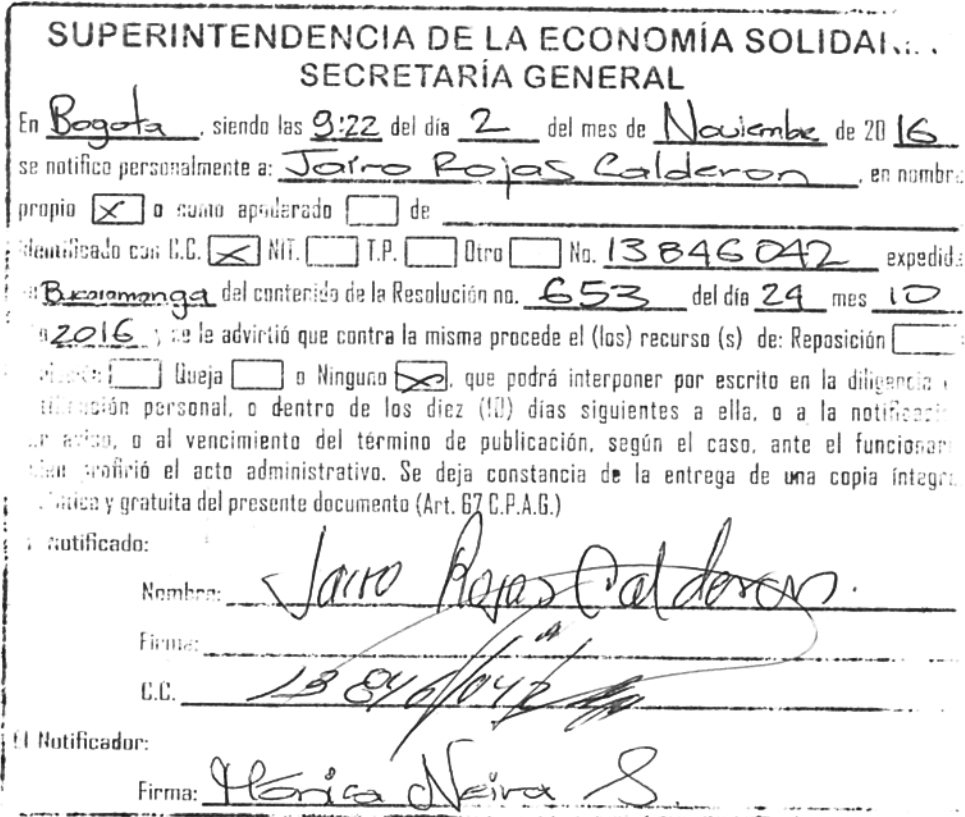 SUPERINTENDENCIA DE LA ECONOMÍA
SECRETARÍA GENERAL
En Bogota, siendo las 9:22 del día 2 del mes de Noviembre de 2016
se notifico personalmente a: Jairo Rojas Calderon, en
propio X o como apoderado de
identificado con C.C. X NIT. T.P. Otro No. 13846042
Bucaramanga del contenido de la Resolución no. 653 del día 24 mes 10
2016, se le advirtió que contra la misma procede el (los) recurso (s) de: Reposición
Queja o Ninguno X, que podrá interponer por escrito en la diligencia
personal, o dentro de los diez (10) días siguientes a ella, o a la
aviso, o al vencimiento del término de publicación, según el caso, ante el
profirió el acto administrativo. Se deja constancia de la entrega de una copia
y gratuita del presente documento (Art. 67 C.P.A.G.)
notificado:
Nombre: Jairo Rojas Calderon.
Firma:
C.C. 13846042
El Notificador:
Firma: Monica Neira S.